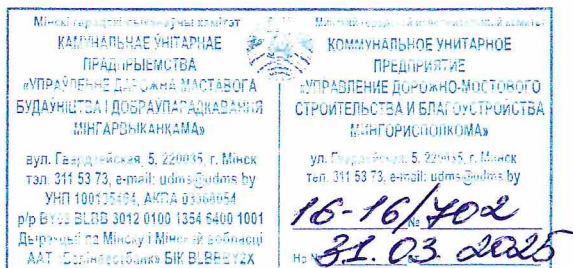 Мінскі гарадскі выканаўчы камітэт
КАМУНАЛЬНАЕ ЎНІТАРНАЕ
ПРАДПРЫЕМСТВА
«УПРАЎЛЕННЕ ДАРОЖНА-МАСТАВОГА
БУДАЎНІЦТВА І ДОБРАЎПАРАДКАВАННЯ
МІНГАРВЫКАНКАМА»
вул. Гвардзейская, 5, 220035, г. Мінск
тэл. 311 53 73, e-mail: udms@udms.by
УНП
р/р BLBB 3012 0100 1354 6400 1001
Дырэкцыі па Мінску і Мінскай вобласці
ААТ «Белінвестбанк» БІК
Минский городской исполнительный комитет
КОММУНАЛЬНОЕ УНИТАРНОЕ
ПРЕДПРИЯТИЕ
«УПРАВЛЕНИЕ ДОРОЖНО-МОСТОВОГО
СТРОИТЕЛЬСТВА И БЛАГОУСТРОЙСТВА
МИНГОРИСПОЛКОМА»
ул. Гвардейская, 5, 220035, г. Минск
тел. 311 53 73, e-mail: udms@udms.by
16-16/702
№
На №
31.03.2025